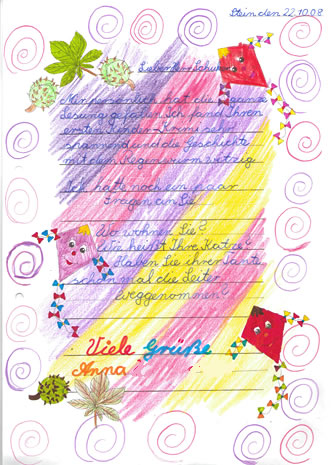 Steinden 22.10.08
Lieber Herr Schulz
Mir persönlich hat die ganze
Lesung gefallen. Ich fand Ihren
ersten Kinder-Krimi sehr
spannend und die Geschichte
mit dem Regenwurm witzig.
Ich hätte noch ein paar
Fragen an Sie.
Wo wohnen Sie?
Wie heißt Ihre Katze?
Haben Sie ihrer Tante
schon mal die Leiter
weggenommen?
Viele Grüße
Anna